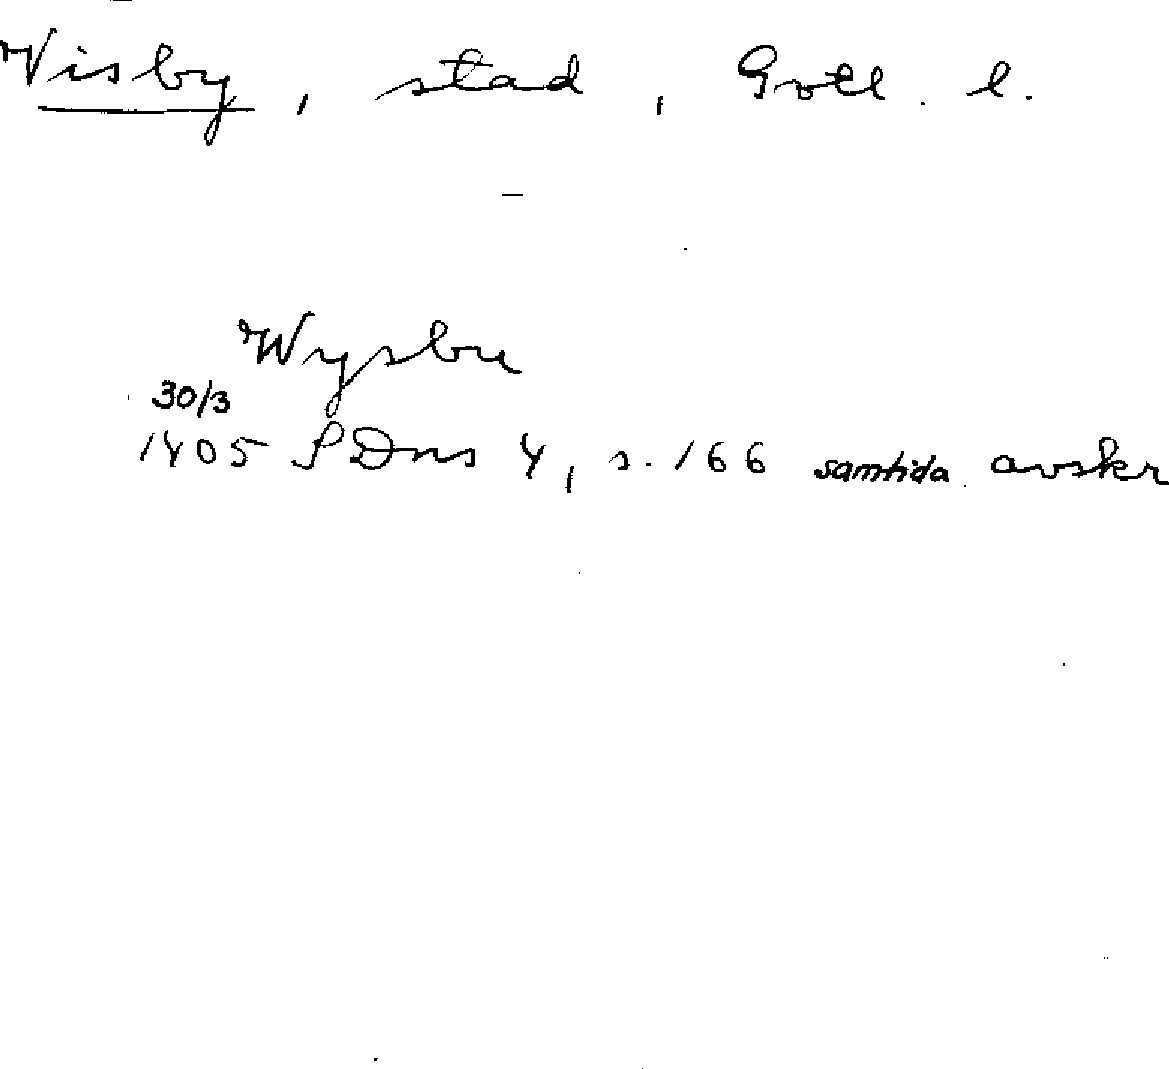 Visby, stad, Gotl. l.
Wysbu
30/3
1405 SDns 4, s. 166 samtida avskr